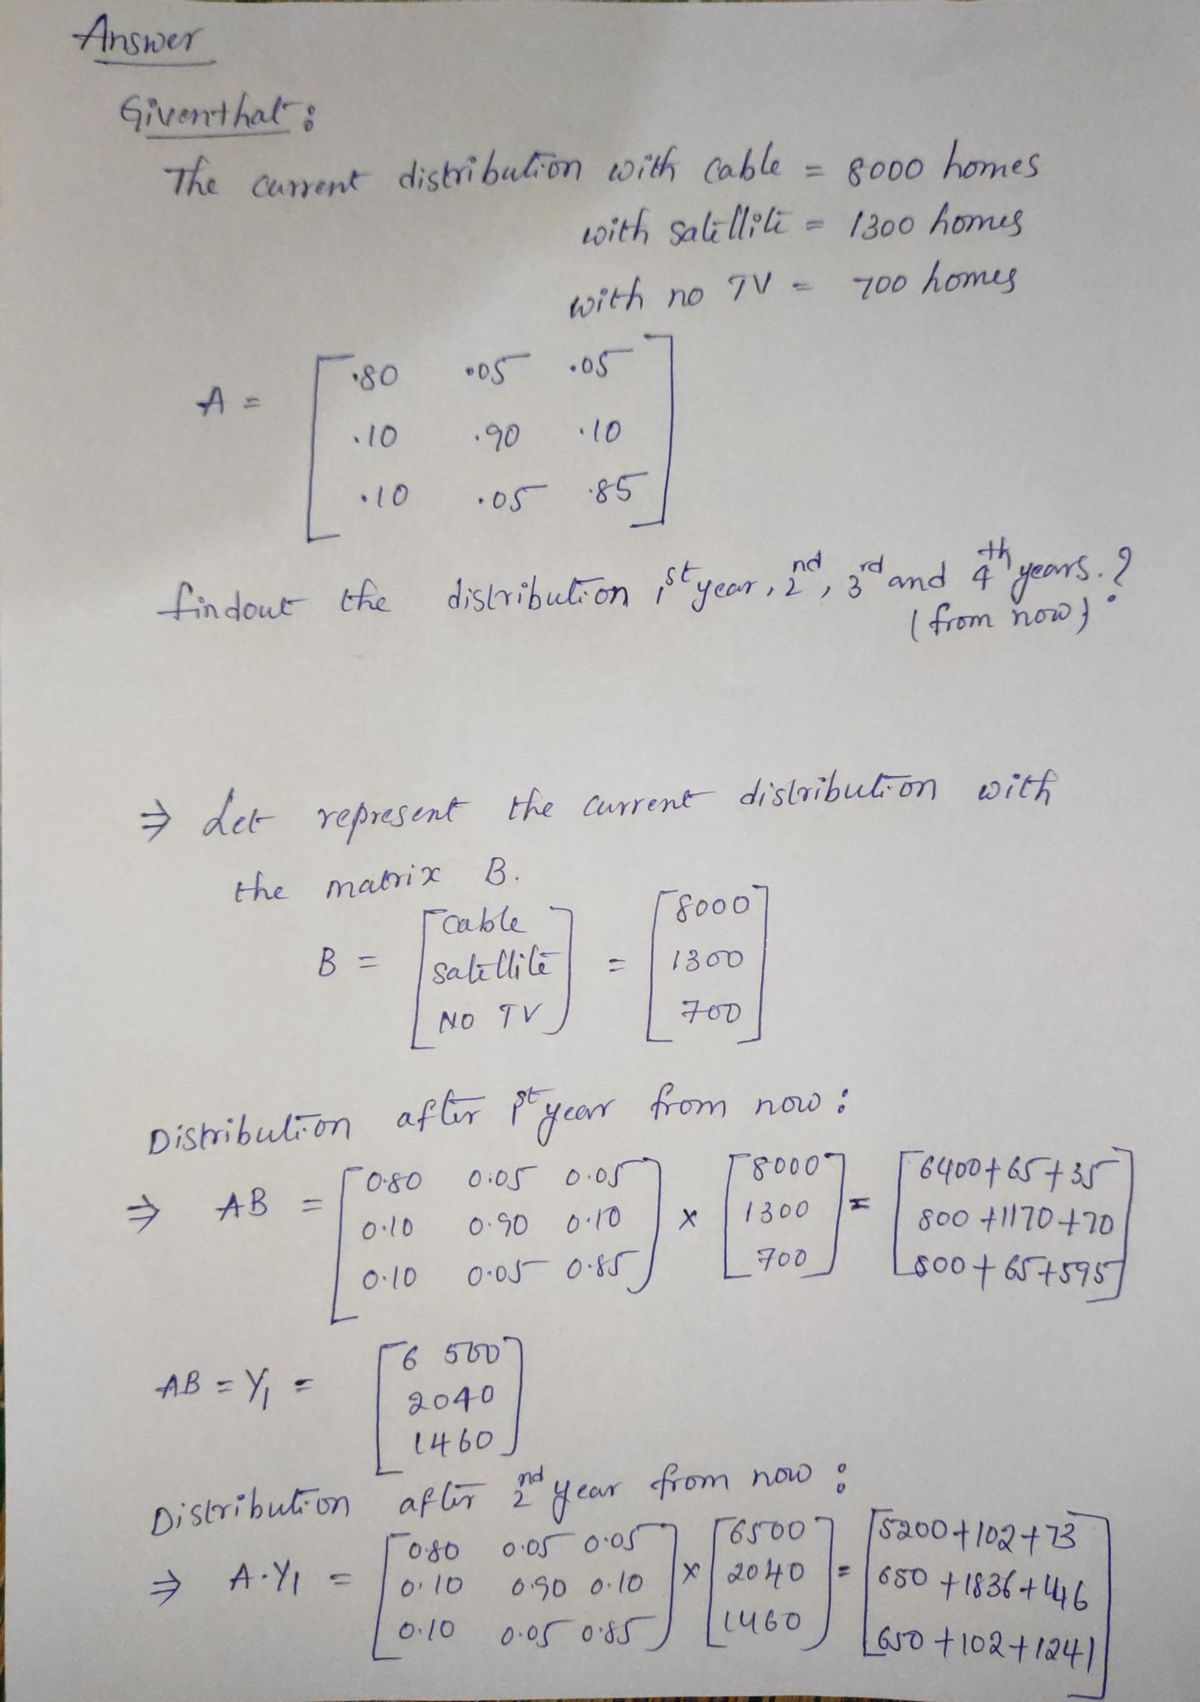 Answer
Giventhat:
The current distribution with cable = 8000 homes
with satellite = 1300 homes
with no TV = 700 homes
A = [ .80 .05 .05
.10 .90 .10
.10 .05 .85 ]
findout the distribution 1st year, 2nd, 3rd and 4th years.?
(from now)
⇒ Let represent the current distribution with
the matrix B.
B = [ cable satellite NO TV ] = [ 8000 1300 700 ]
Distribution after 1st year from now:
⇒ AB = [ 0.80 0.05 0.05
0.10 0.90 0.10
0.10 0.05 0.85 ] × [ 8000 1300 700 ] = [ 6400+65+35
800+1170+70
800+65+595 ]
AB = Y1 = [ 6500
2040
1460 ]
Distribution after 2nd year from now:
⇒ A.Y1 = [ 0.80 0.05 0.05
0.10 0.90 0.10
0.10 0.05 0.85 ] × [ 6500 2040 1460 ] = [ 5200+102+73
650+1836+146
650+102+1241 ]